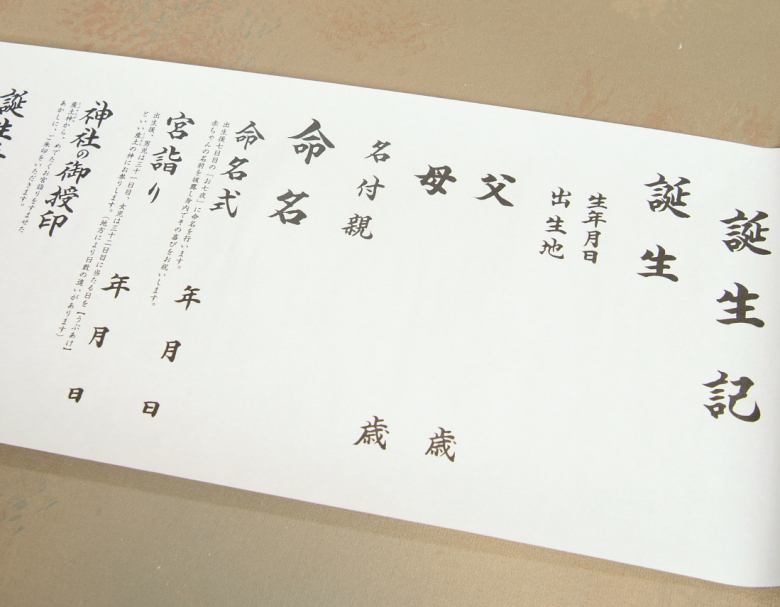 誕生記
誕生
生年月日
出生地
父 歳
母 歳
名付親
命名
命名式 年 月 日
出生後七日目の「お七夜」に命名を行います。
赤ちゃんの名前を披露し身内でその喜びをお祝いします。
宮詣り 年 月 日
出生後、男児は三十一日目、女児は三十二日目に当たる日を【うぶあけ】
といい産土の神にお参りします。(地方により日数の違いがあります)
神社の御授印
産土神から、めでたくお宮詣りをすませた
あかしに、ご朱印をいただきます。
誕生